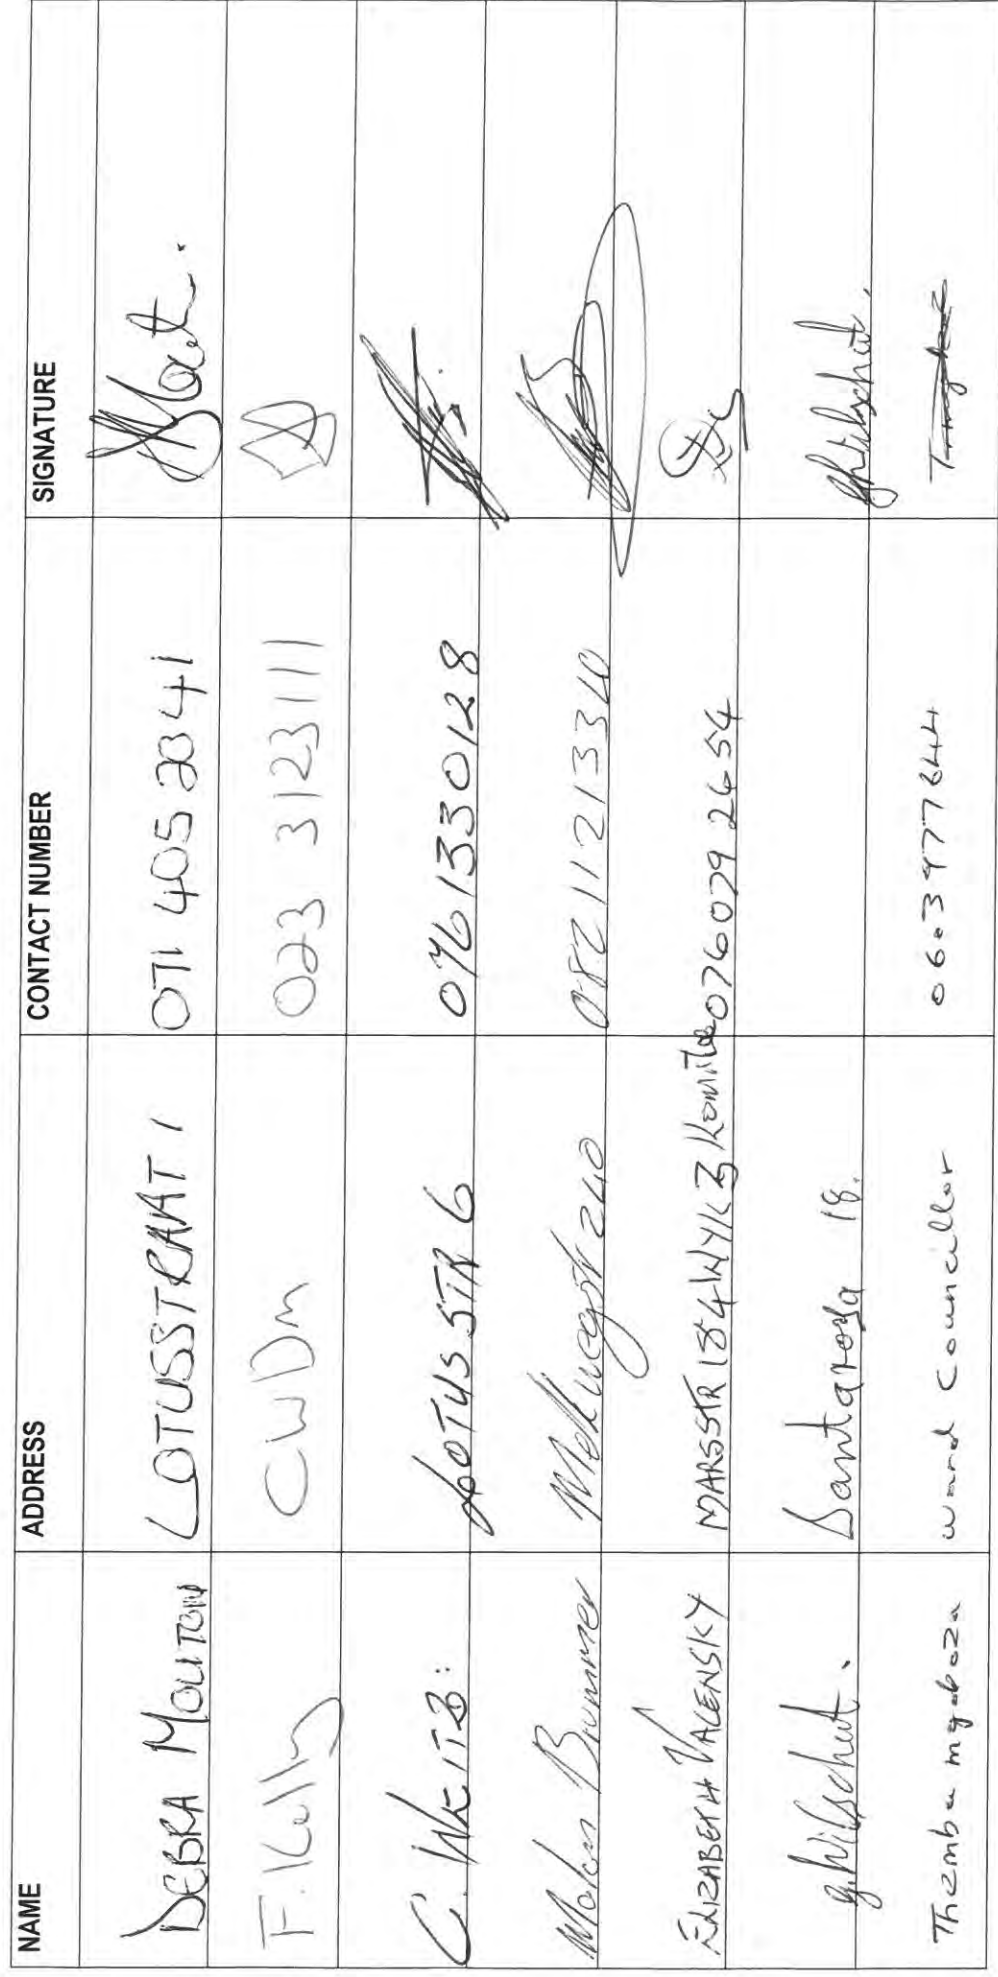 NAME ADDRESS CONTACT NUMBER SIGNATURE
DEBRA MOUTON LOTUSSTRAAT 1 071 405 2341
F. Kelly CWDM 023 3123111
C. WEITZ: LOTUS STR 6 0761330128
Brummer Melkwegstr 240 08211213310
ELIZABETH VALENSKY MARSSTR 184 WYK 3 Komitee 076079 2454
g. Wilschut. Santarosa 18.
Themba mgoboza ward Councillor